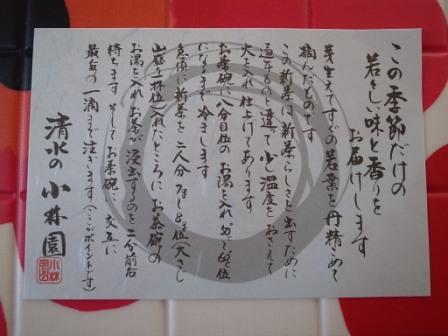 この季節だけの
若々しい味と香りを
お届けします
芽生えてすぐの若葉を丹精こめて
摘んだものです
この新茶は新茶らしさを出すために
通年ものと違って少し温度をおさえて
火を入れ仕上げてあります
お茶碗に八分目位のお湯を入れ50℃~60℃位
になるまで冷まします
急須に新茶を二人分7g~8g位(大さじ
山盛り一杯位)入れたところにお茶碗の
お湯を入れお茶が浸出するのを二分前后
待ちます そしてお茶碗に交互に
最后の一滴まで注ぎます(ここがポイントです)
清水の 小林園